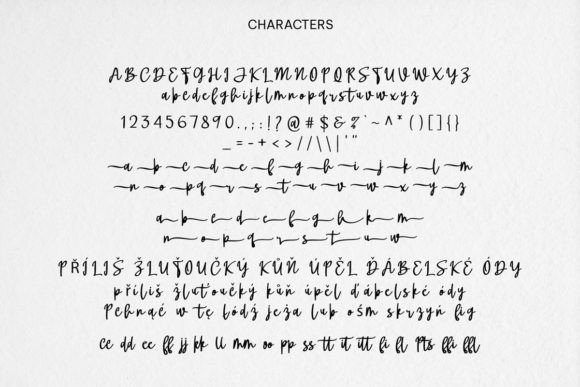 CHARACTERS
ABCDEFGHIJKLMNOPQRSTUVWXYZ
abcdefghijklmnopqrstuvwxyz
1234567890.,;:!?@#$&%`~^*()[]{}
_=-+<>//\\|'"
a b c d e f g h i j k l m
n o p q r s t u v w x y z
a b e d c f g h k m
n o p q r s t u w
PŘÍLIŠ ŽLUŤOUČKÝ KŮŇ ÚPĚL ĎÁBELSKÉ ÓDY
příliš žluťoučký kůň úpěl ďábelské ódy
Pchnąć w tę łódź jeża lub ośm skrzyń fig
cc dd ee ff jj kk ll mm oo pp ss tt it ut fi fl ffi ffl